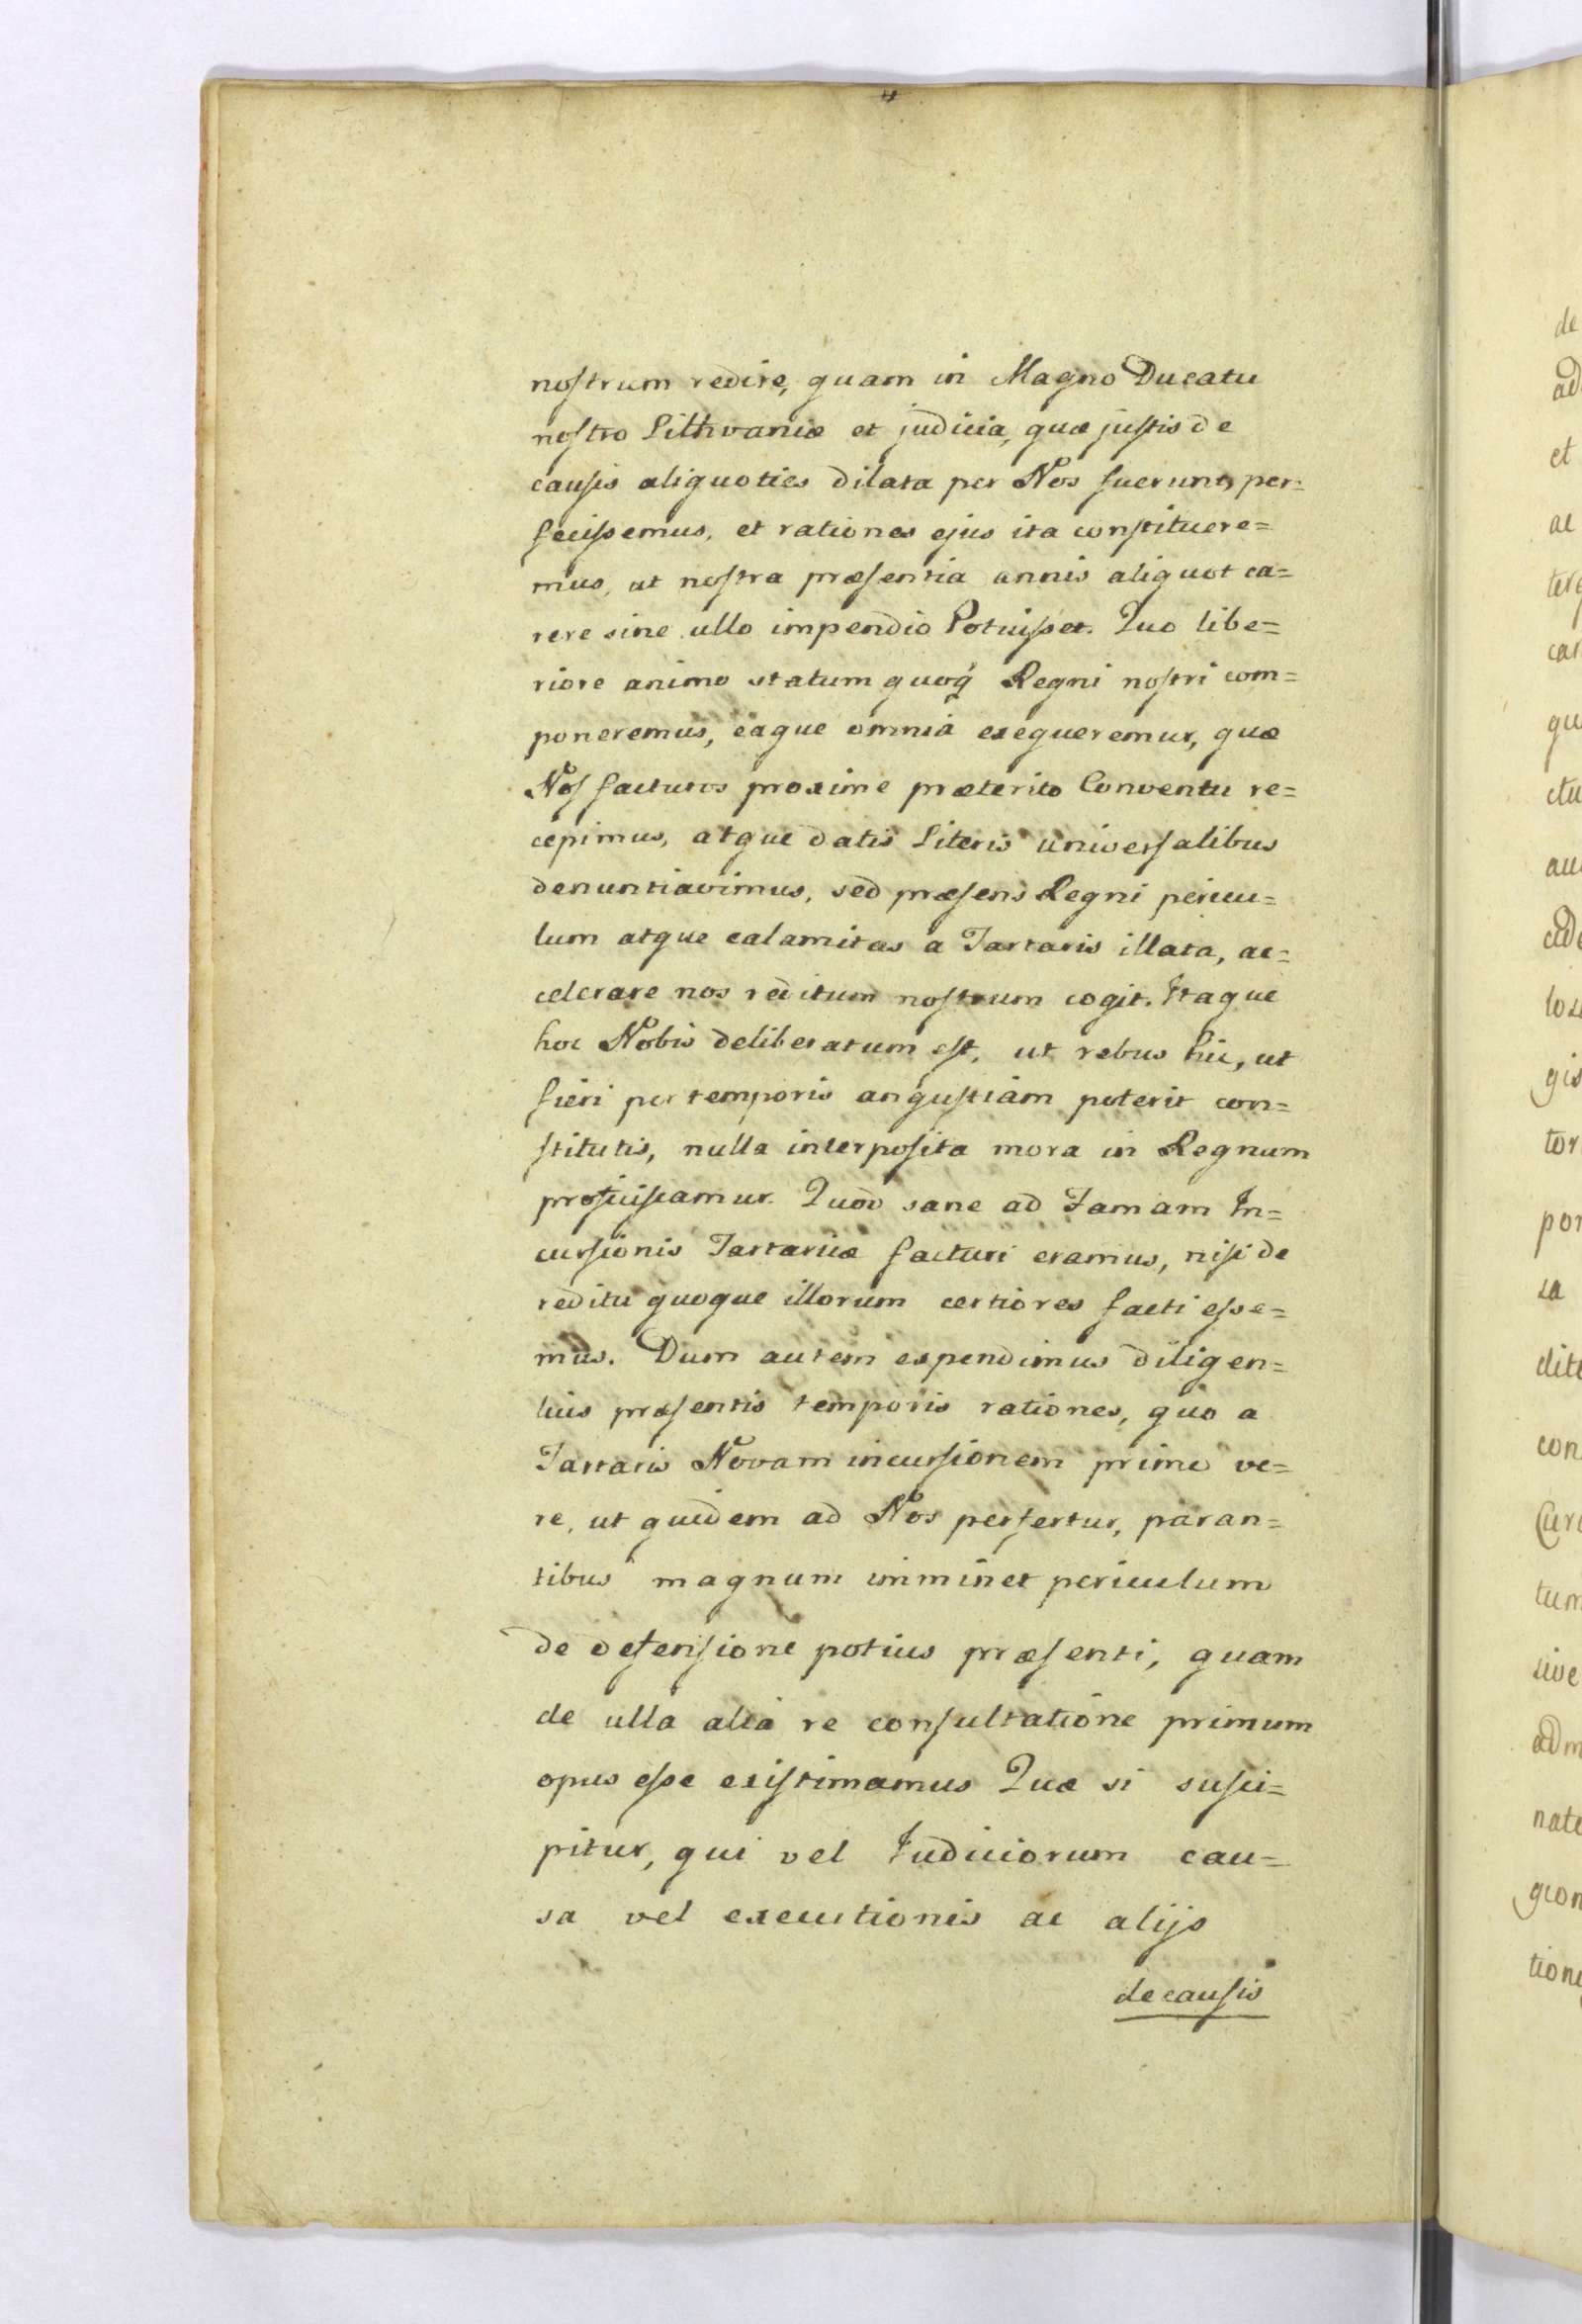 nostrum redire, quam in Magno Ducatu
nostro Lithvaniæ et judicia, quæ justis de
causis aliquoties dilata per Nos fuerunt, per=
fecissemus, et rationes ejus ita constituere=
mus, ut nostra præsentia annis aliquot ca=
rere sine ullo impendio Potuisset. Quo libe=
riore animo statum quoq́ Regni nostri com=
poneremus, eaque omnia exequeremur, quæ
Nos facturos proxime præterito Conventu re=
cepimus, atque datis Literis universalibus
denuntiavimus, sed præsens Regni pericu=
lum atque calamitas a Tartaris illata, ac=
celerare nos reditum nostrum cogit. Itaque
hoc Nobis deliberatum est, ut rebus hic, ut
fieri per temporis angustiam poterit con=
stitutis, nulla interposita mora in Regnum
proficiscamur. Quod sane ad Famam In=
cursionis Tartaricæ facturi eramus, nisi de
reditu quoque illorum certiores facti esse=
mus. Dum autem expendimus diligen=
tius præsentis temporis rationes, quo a
Tartaris Novam incursionem primo ve=
re, ut quidem ad Nos perfertur, paran=
tibus magnum imminet periculum
de defensione potius præsenti, quam
de ulla alia re consultatione primum
opus esse existimamus Quæ si susci=
pitur, qui vel Iudiciorum cau=
sa vel executionis ac alijs
de causis
de
ad
et
ac
car
qu
ctu
gis
tor
por
sa
con
tum
sive
adm
nate
gion
tione